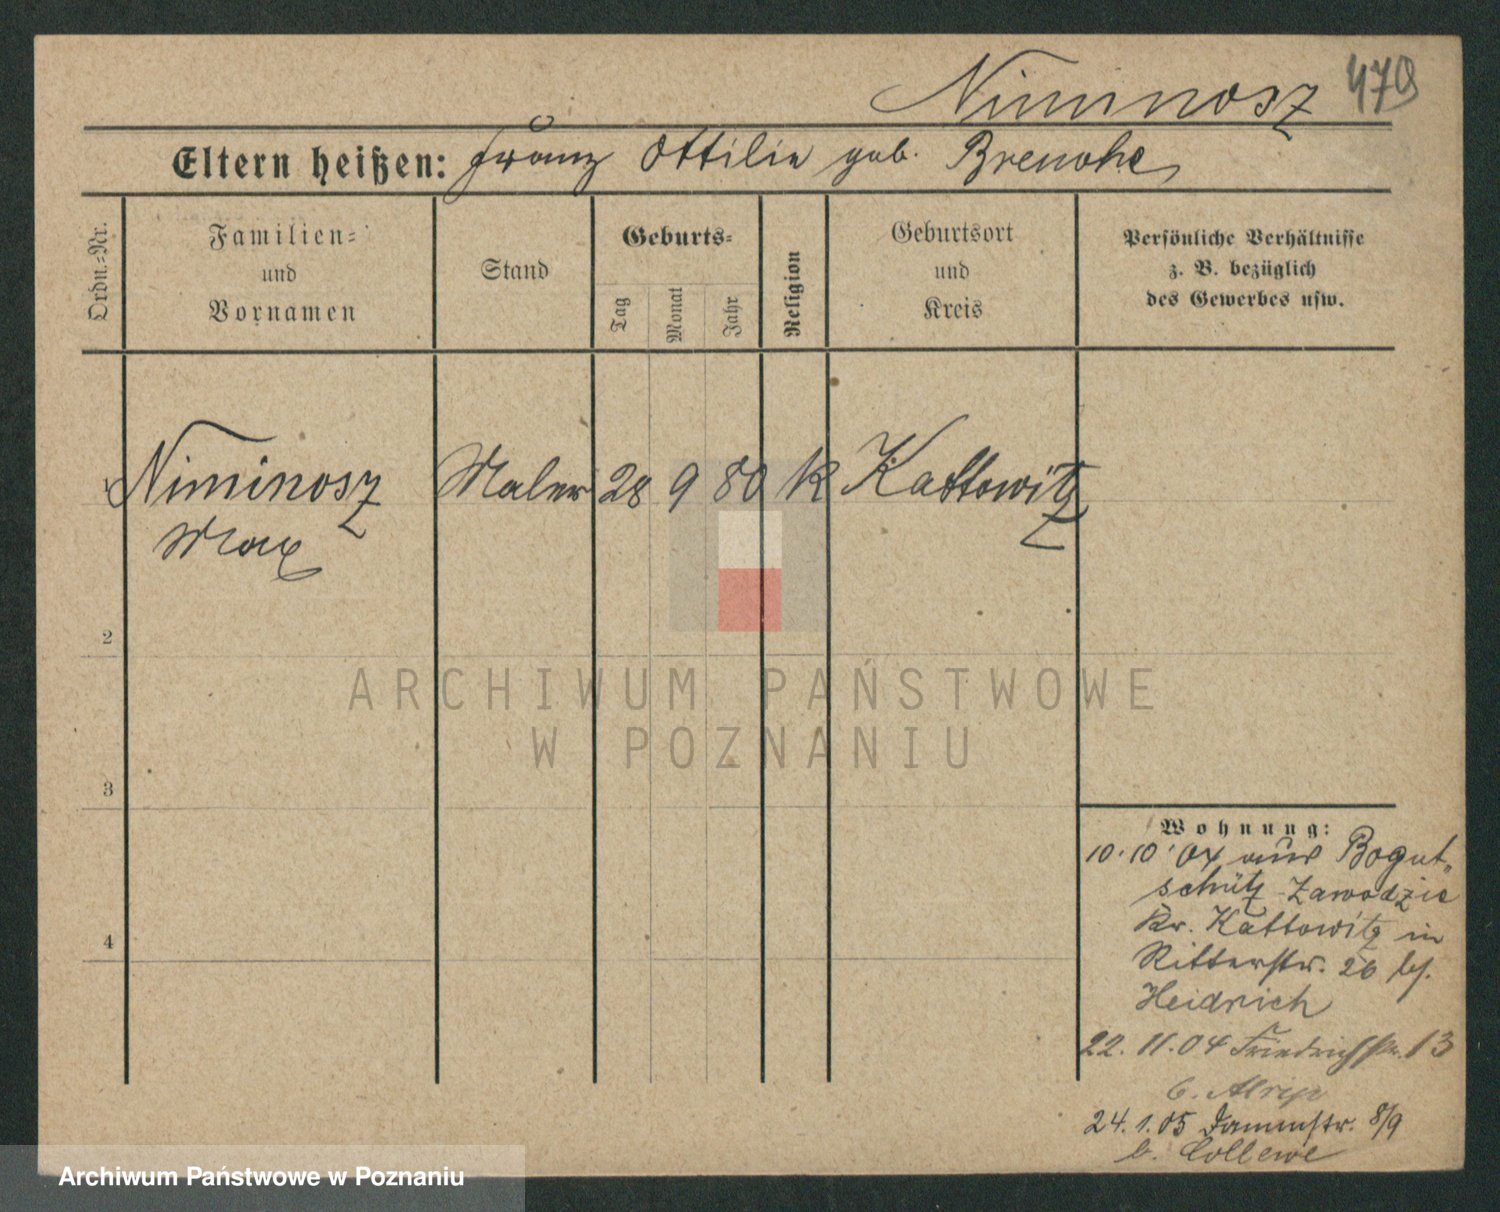 Niminosz 479
Eltern heißen: Franz Ottilie geb.
Ordn.-Nr.
Familien-
und
Vornamen
Stand
Geburts-
Tag
Monat
Jahr
Religion
Geburtsort
und
Kreis
Persönliche Verhältnisse
z. B. bezüglich
des Gewerbes usw.
1 Niminosz Maler 28 9 80 K Kattowitz
Max
2
3
4
Wohnung:
10.10.04 aus Bogut-
schütz-Zawodzie
Kr. Kattowitz in
Ritterstr. 26 bei
Heidrich
22. 11. 04 Friedrichstr. 13
b.
24. 1. 05 Dammstr. 8/9
b. Collewe
ARCHIWUM PAŃSTWOWE
W POZNANIU
Archiwum Państwowe w Poznaniu